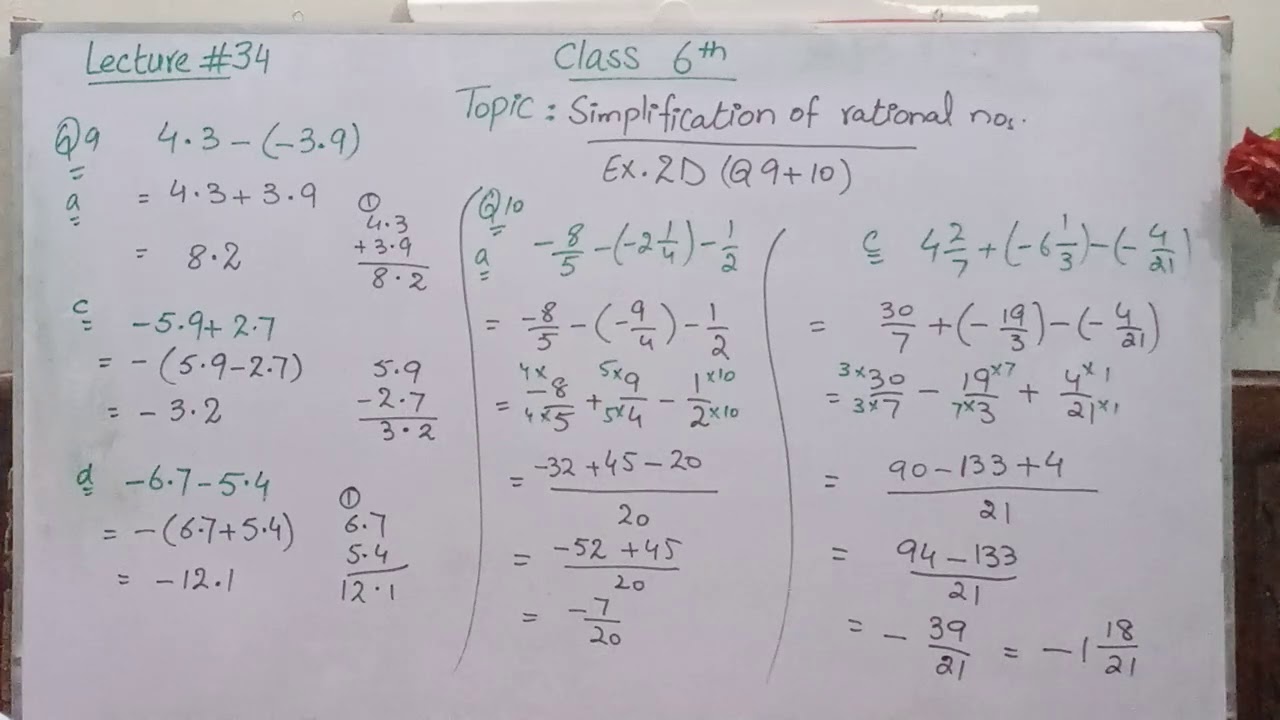 Lecture #34
Class 6th
Topic: Simplification of rational nos.
Ex. 2D (Q 9+10)
Q9 4.3 - (-3.9)
a = 4.3 + 3.9
= 8.2
①
4.3
+ 3.9
8.2
c -5.9 + 2.7
= -(5.9 - 2.7)
= -3.2
5.9
- 2.7
3.2
d -6.7 - 5.4
= -(6.7 + 5.4)
= -12.1
①
6.7
5.4
12.1
Q10
a -8/5 - (-2 1/4) - 1/2
= -8/5 - (-9/4) - 1/2
= 4× -8/4× 5 + 5× 9/5× 4 - 1 ×10/2 ×10
= -32 + 45 - 20/20
= -52 + 45/20
= -7/20
c 4 2/7 + (-6 1/3) - (-4/21)
= 30/7 + (-19/3) - (-4/21)
= 3× 30/3× 7 - 19 ×7/7× 3 + 4 × 1/21 ×1
= 90 - 133 + 4/21
= 94 - 133/21
= - 39/21 = -1 18/21